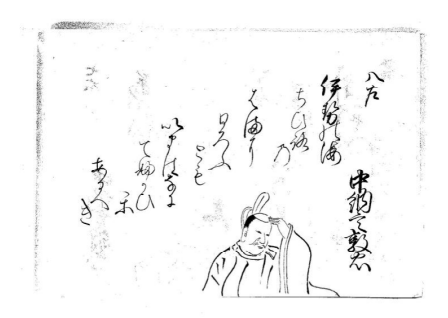 八左
中納言敦忠
伊勢の海
ちひ路
乃
はまに
ひろふ
とも
以まはなに
て婦かひ
か
あるへ
き